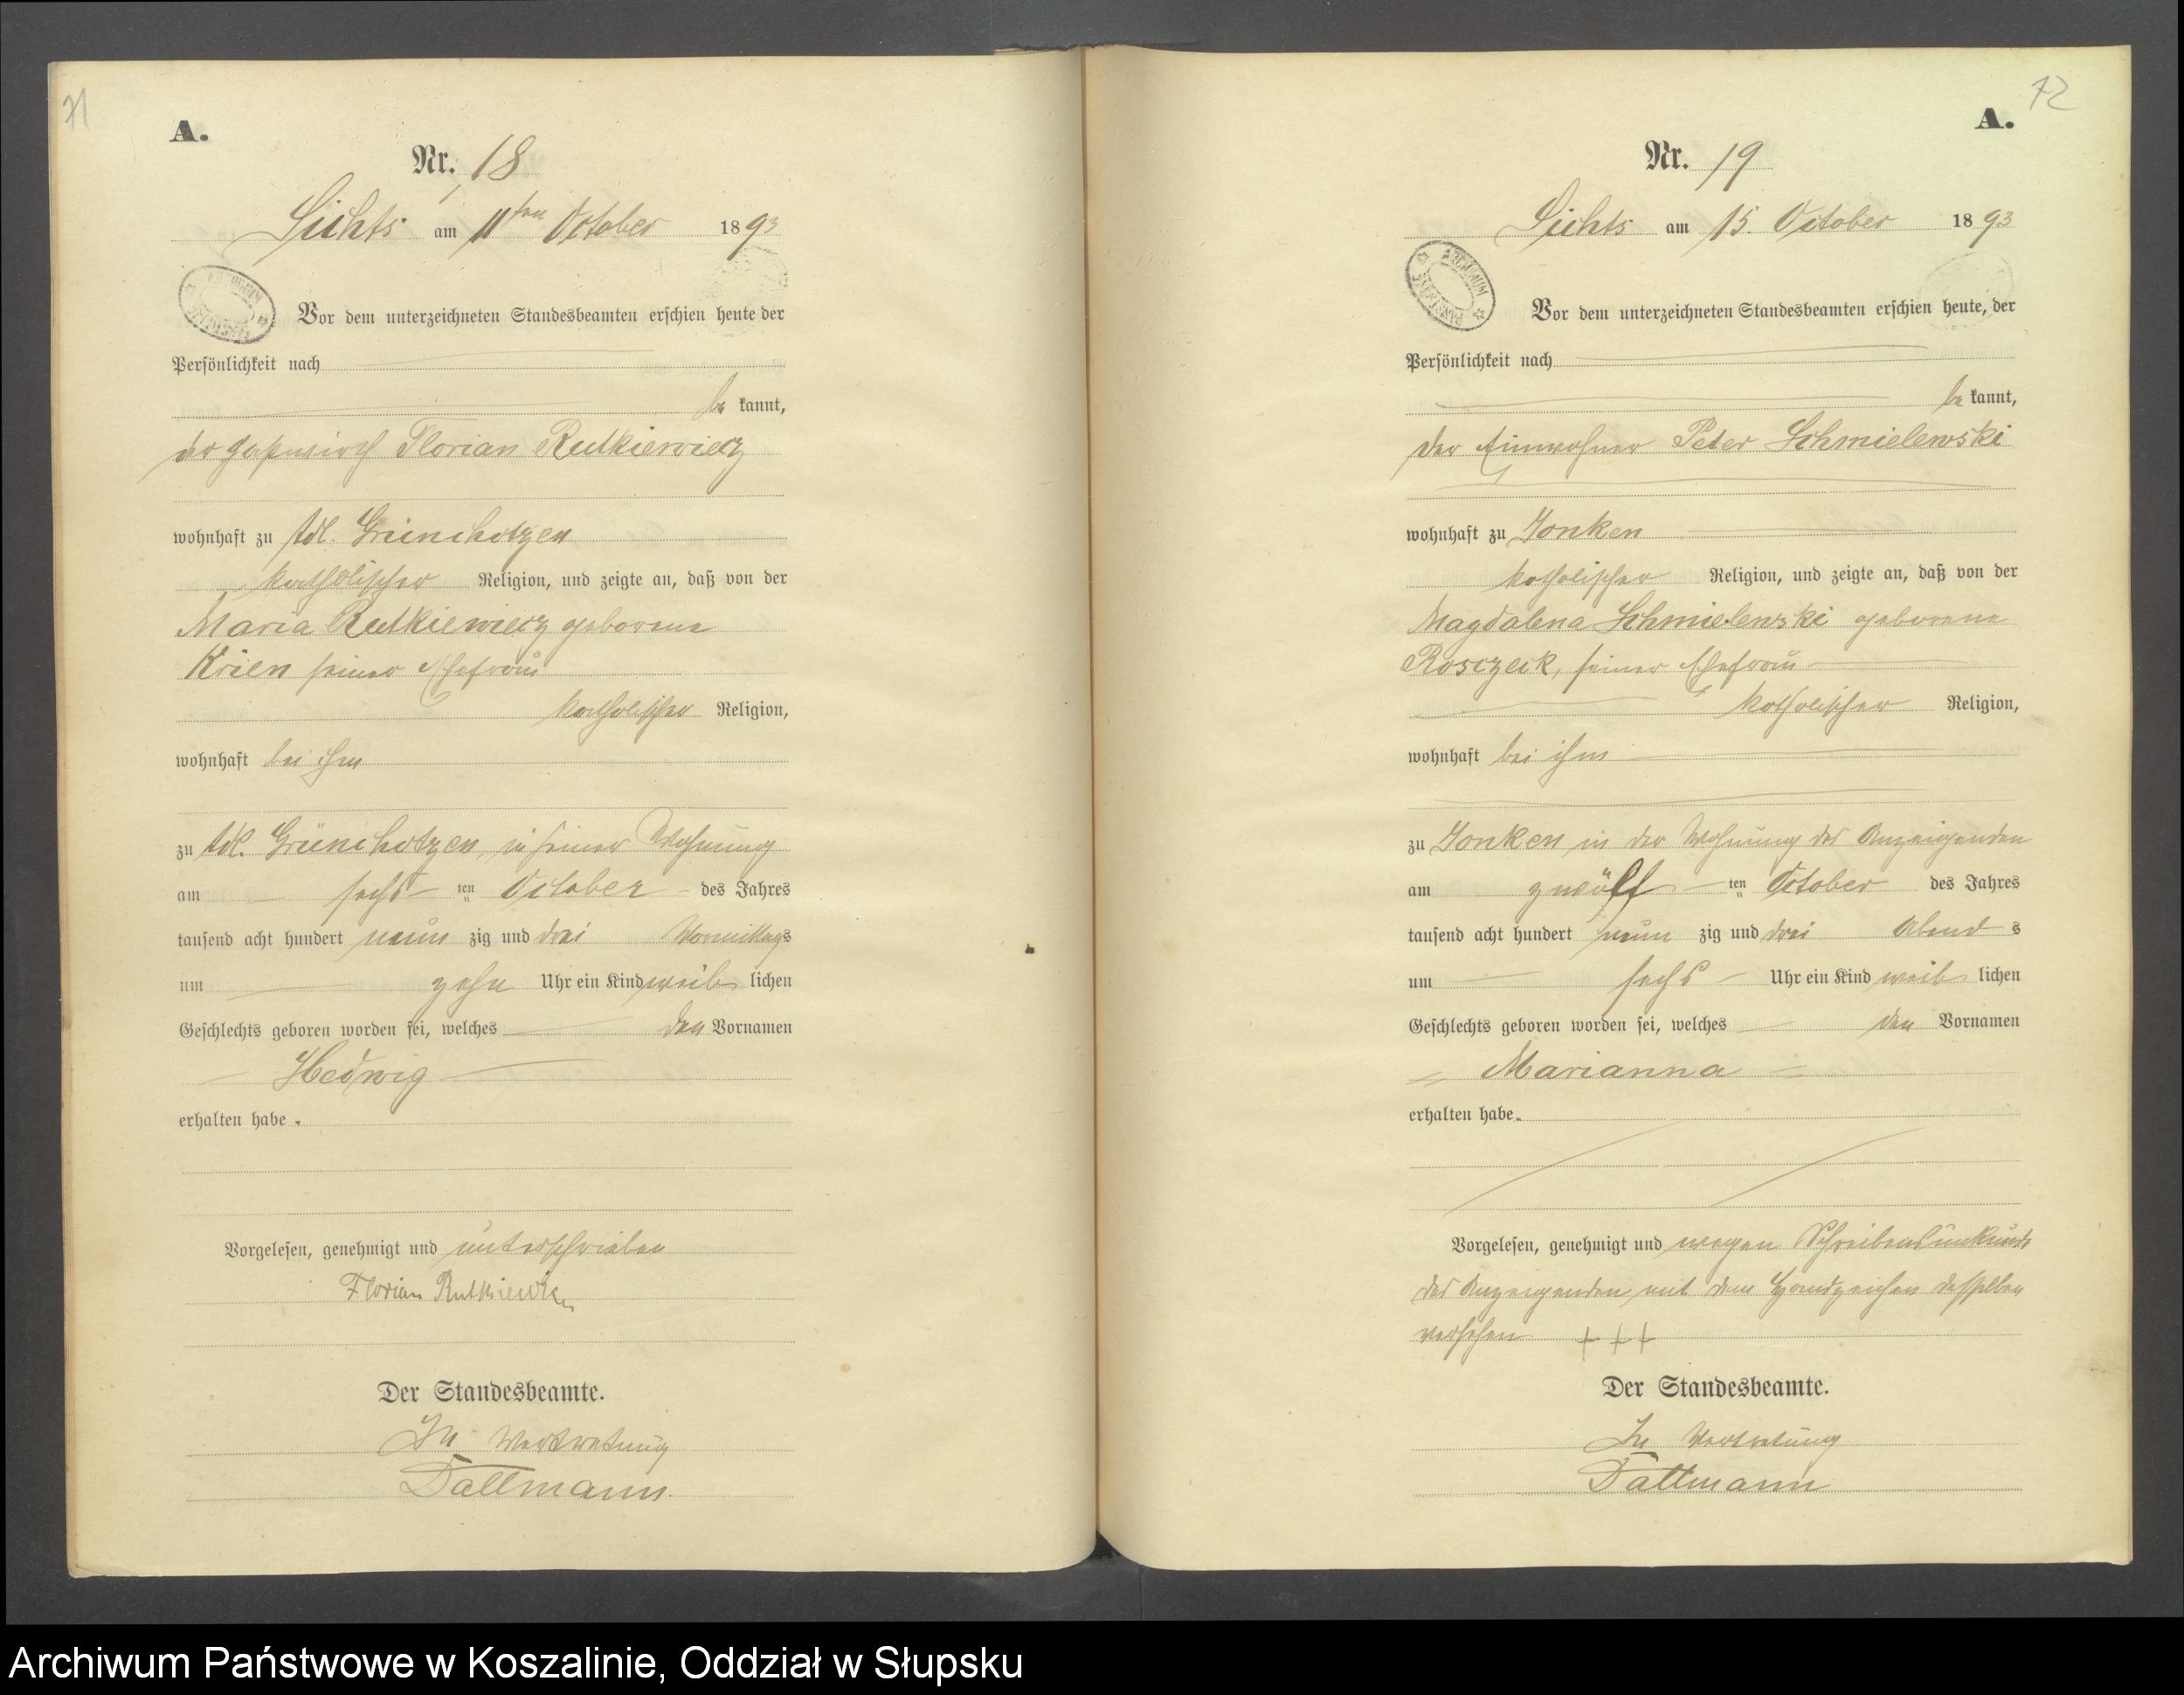 71
A.
Nr. 18
Lichts am 11ten October 1893
Vor dem unterzeichneten Standesbeamten erschien heute der
Persönlichkeit nach
be kannt,
der Florian Rutkiewicz
wohnhaft zu Adl. Grünchotzen
katholischer Religion, und zeigte an, daß von der
Maria Rutkiewicz geborene
Krien seiner Ehefrau
katholischer Religion,
wohnhaft bei ihm
zu Adl. Grünchotzen, in seiner Wohnung
am sechs ten October des Jahres
tausend acht hundert neun zig und drei Vormittags
um zehn Uhr ein Kind weib lichen
Geschlechts geboren worden sei, welches den Vornamen
Hedwig
erhalten habe.
Vorgelesen, genehmigt und unterschrieben
Florian Rutkiewicz
Der Standesbeamte.
In Vertretung
Dallmann
72
A.
Nr. 19
Lichts am 15. October 1893
Vor dem unterzeichneten Standesbeamten erschien heute, der
Persönlichkeit nach
be kannt,
der Einwohner Peter Schmielewski
wohnhaft zu Zonken
katholischer Religion, und zeigte an, daß von der
Magdalena Schmielewski geborene
Rosczeck, seiner Ehefrau
katholischer Religion,
wohnhaft bei ihm
zu Zonken in der Wohnung des Anzeigenden
am zwölf ten October des Jahres
tausend acht hundert neun zig und drei Abend s
um sechs Uhr ein Kind weib lichen
Geschlechts geboren worden sei, welches den Vornamen
Marianna
erhalten habe.
Vorgelesen, genehmigt und wegen Schreibensunkunde
des Anzeigenden mit dem Handzeichen desselben
versehen +++
Der Standesbeamte.
In Vertretung
Dallmann
Archiwum Państwowe w Koszalinie, Oddział w Słupsku